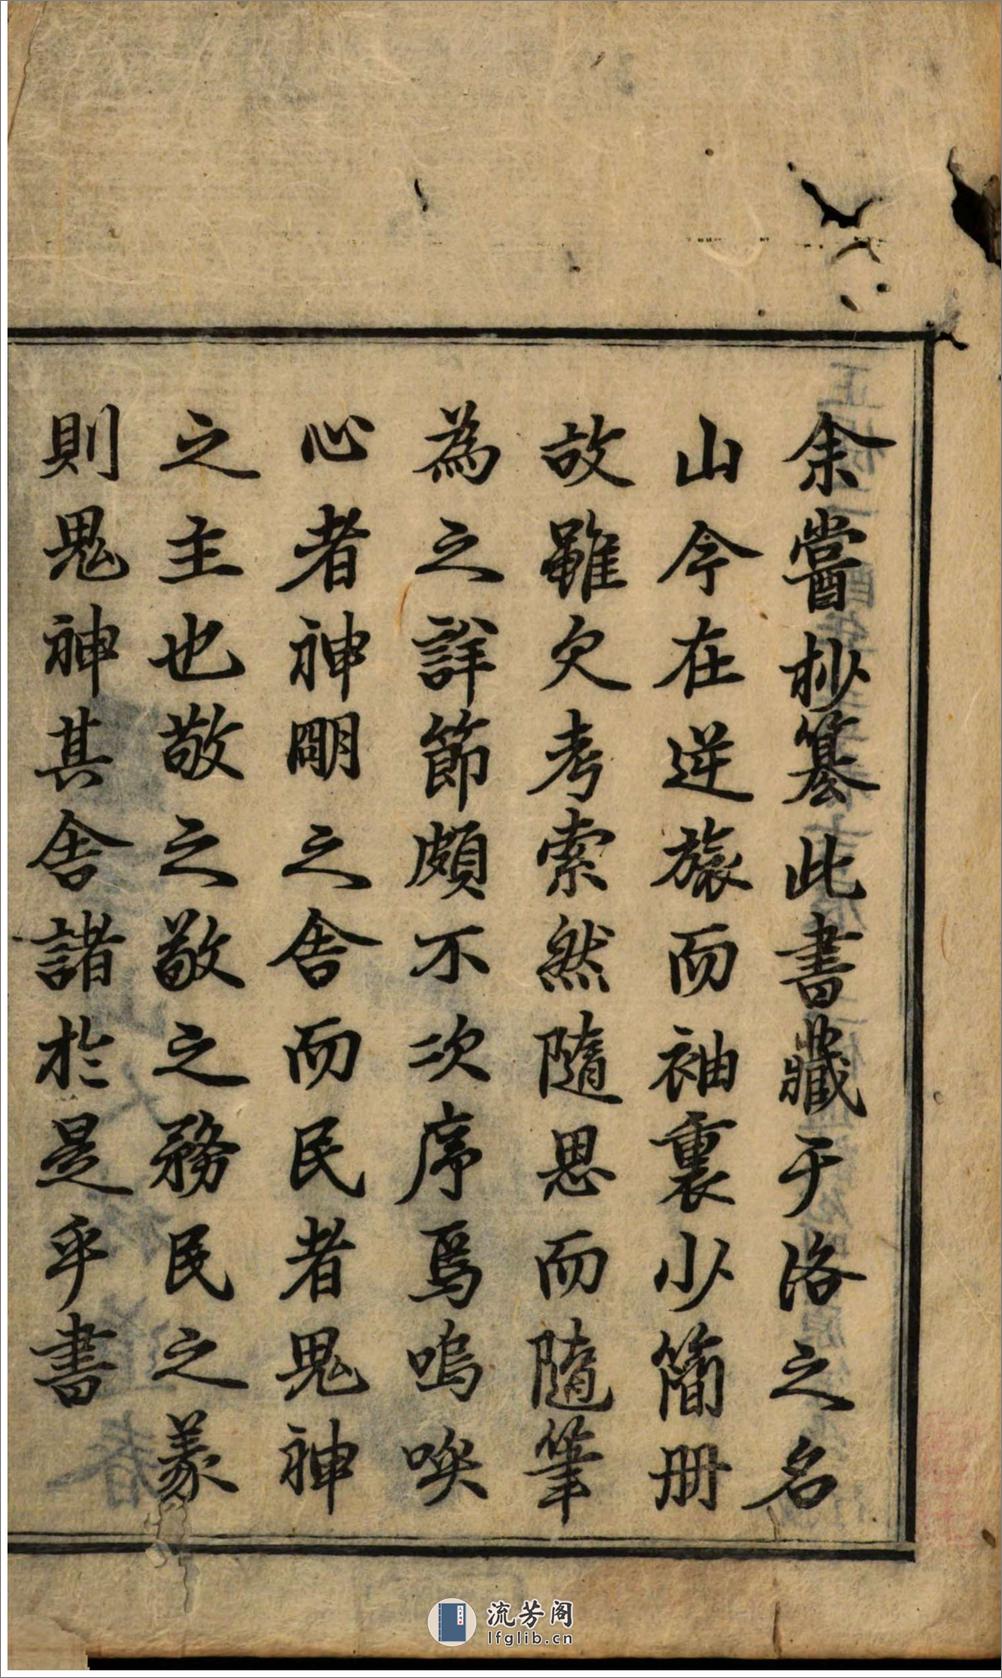 余嘗抄纂此書藏于洛之名
山今在逆旅而袖裏少簡册
故雖欠考索然隨思而隨筆
為之詳節頗不次序焉嗚呼
心者神明之舍而民者鬼神
之主也敬之敬之務民之義
則鬼神其舍諸於是乎書
流芳阁
lfglib.cn